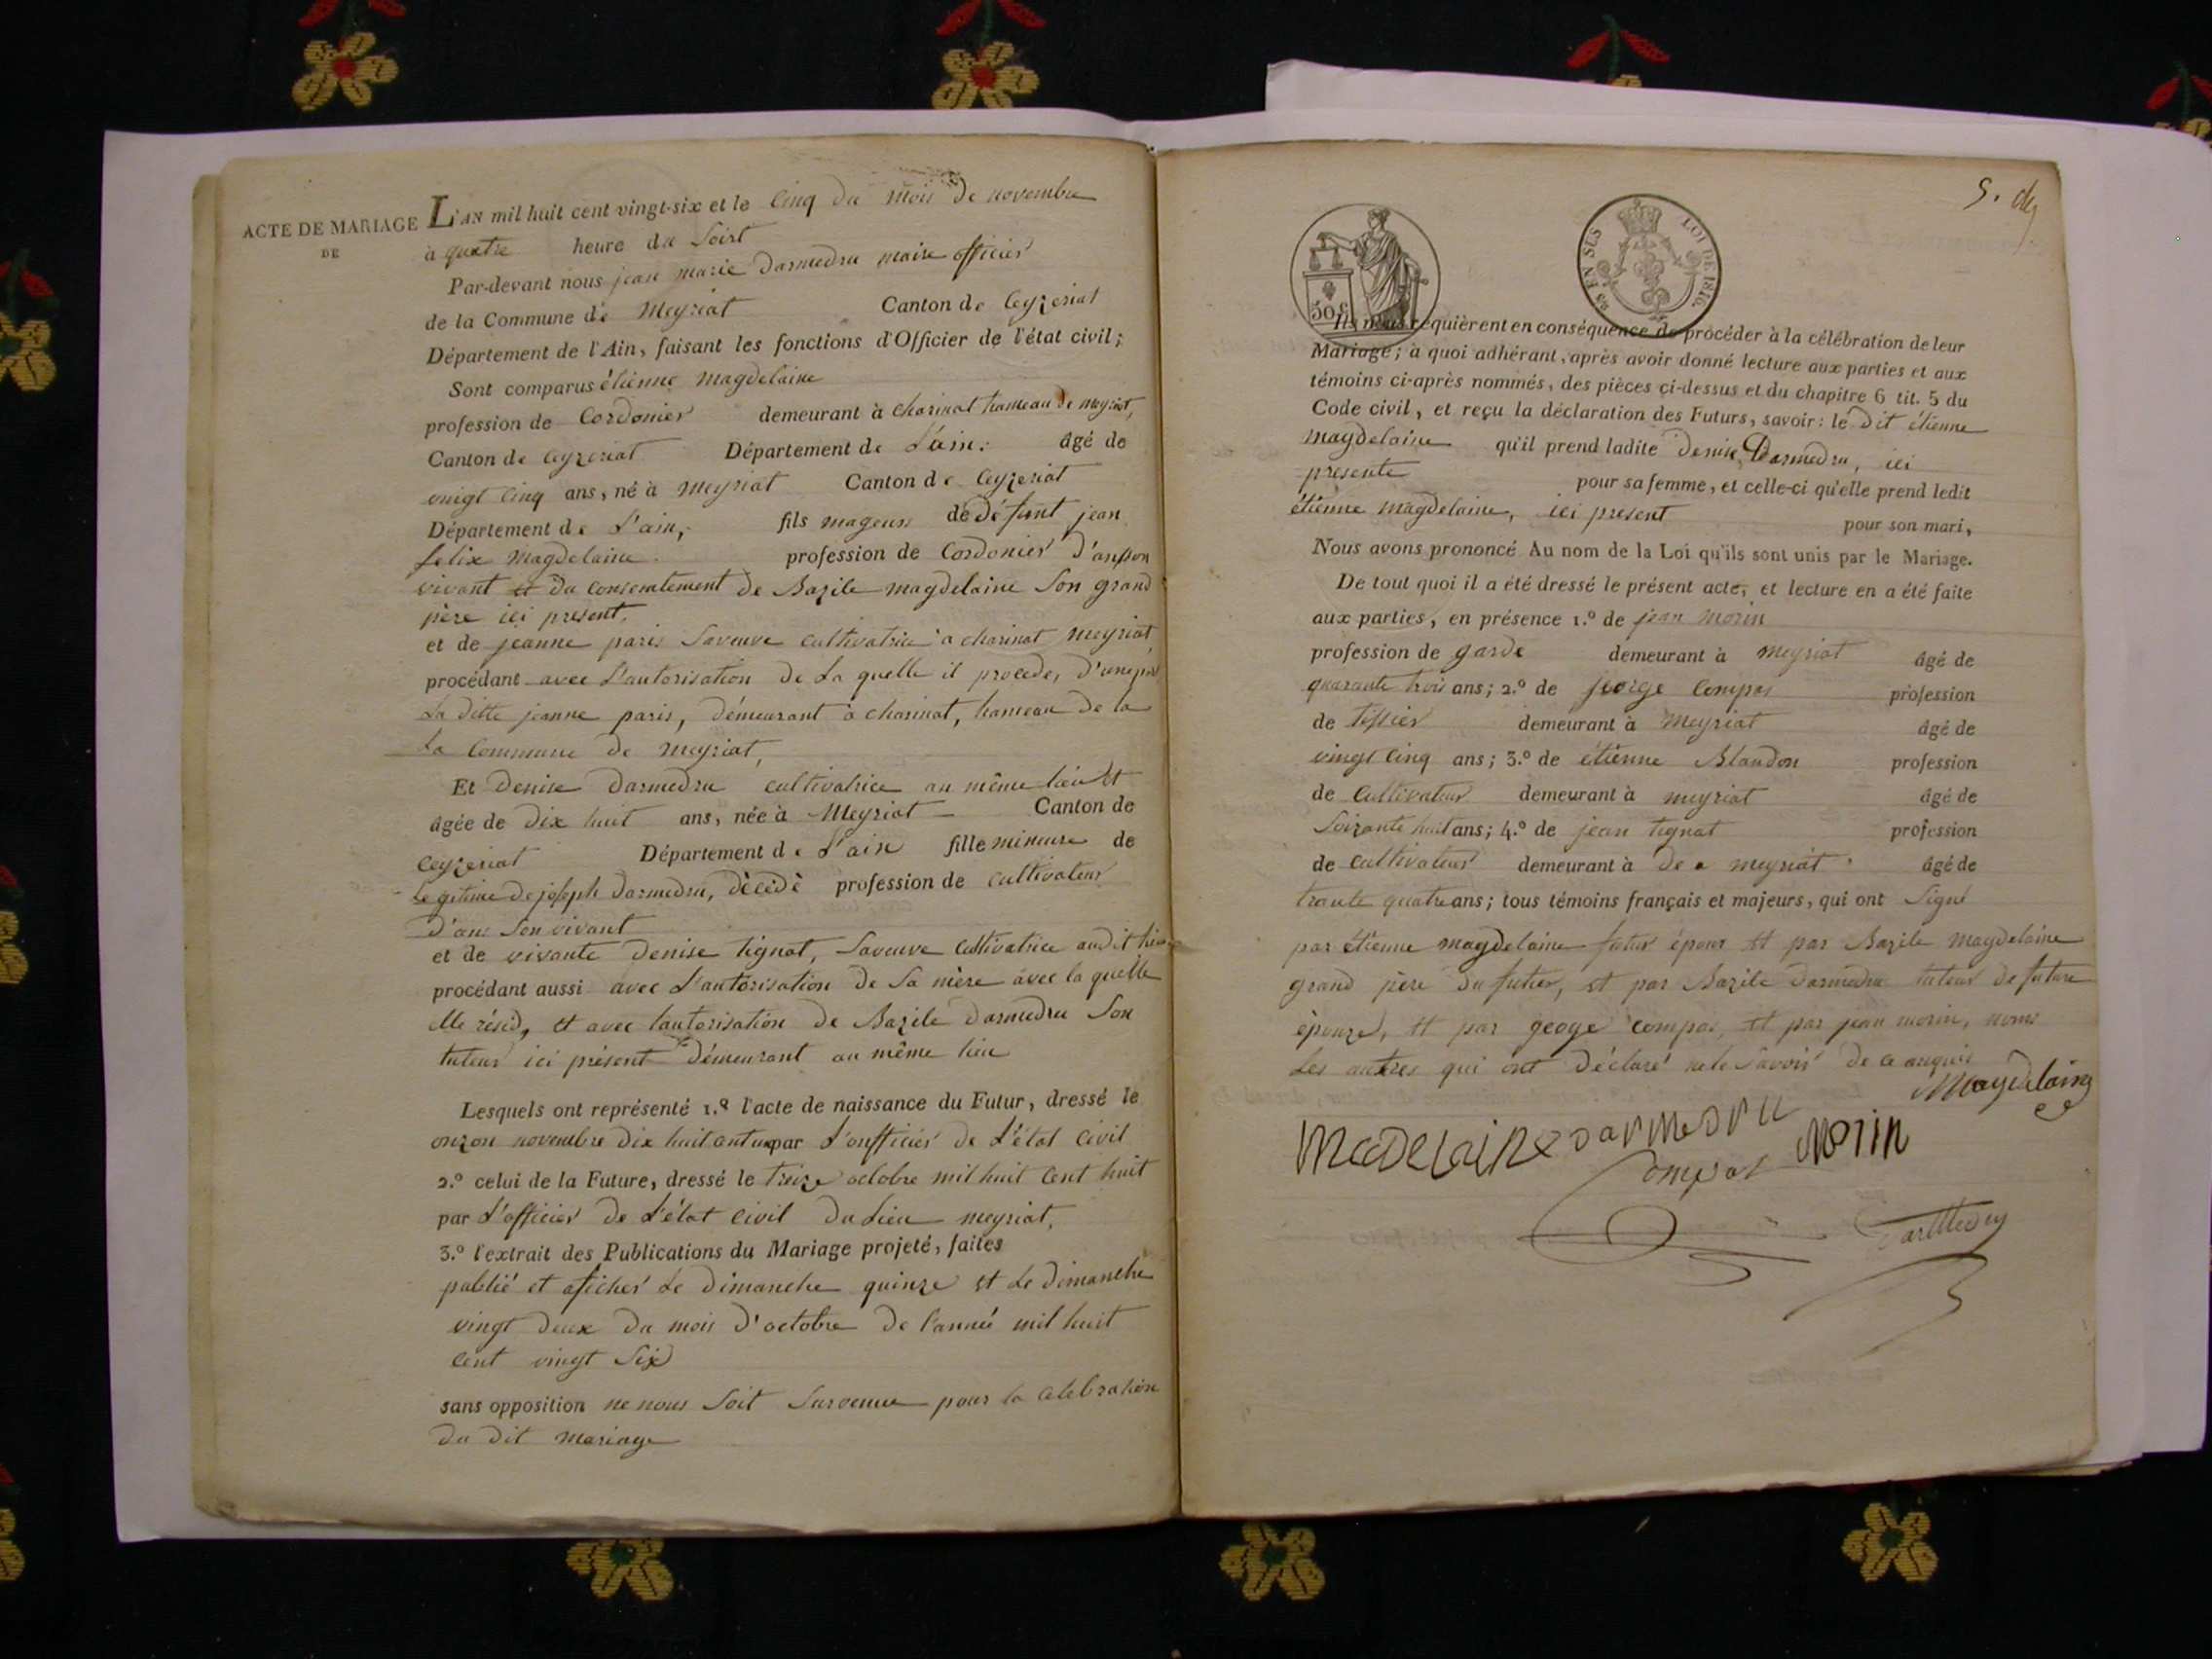 ACTE DE MARIAGE
DE
L'AN mil huit cent vingt-six et le cinq du mois de novembre
à quatre heure du Soirt
Par-devant nous jean marie Darmedru maire officier
de la Commune de Meyriat Canton de Ceyzeriat
Département de l'Ain, faisant les fonctions d'Officier de l'état civil;
Sont comparus étienne magdelaine
profession de Cordonier demeurant à charinat hameau de meyriat,
Canton de Ceyzeriat Département de L'ain. âgé de
vingt Cinq ans, né à meyriat Canton de Ceyzeriat
Département de L'ain, fils mageur de défunt jean
felix magdelaine profession de Cordonier
vivant et du de Bazile magdelaine Son grand
père ici present.
et de jeanne paris Saveuve cultivatrice a charinat meyriat
procédant avec L'autorisation de La quelle il procede,
La ditte jeanne paris, démeurant à charinat, hameau de la
La Commune de meyriat,
Et Denise Darmedru cultivatrice au même lieu et
âgée de dix huit ans, née à Meyriat Canton de
Ceyzeriat Département de L'ain fille mineure de
Légitime de joseph Darmedru, décédé profession de Cultivateur
d'ans Son vivant
et de vivante Denise tignat, Saveuve Cultivatrice audit lieu
procédant aussi avec L'autorisation de Sa mère avec la quelle
elle résid, et avec l'autorisation de Bazile Darmedru Son
tuteur ici présent démeurant au même lieu
Lesquels ont représenté 1.º l'acte de naissance du Futur, dressé le
novembre dix huit par L'onfficier de L'état Civil
2.º celui de la Future, dressé le treize octobre mil huit Cent huit
par L'officier de L'état Civil du Lieu meyriat,
3.º l'extrait des Publications du Mariage projeté, faites
publié et aficher Le dimanche quinze et Le dimanche
vingt deux du mois d'octobre de l'année mil huit
Cent vingt Six
sans opposition ne nous Soit Survenue pour la Celebration
du dit mariage
5.
30 c
EN SUS
LOI DE 1816.
Ils nous requièrent en conséquence de procéder à la célébration de leur
Mariage; à quoi adhérant, après avoir donné lecture aux parties et aux
témoins ci-après nommés, des pièces ci-dessus et du chapitre 6 tit. 5 du
Code civil, et reçu la déclaration des Futurs, savoir: le dit étienne
magdelaine qu'il prend ladite Denise Darmedru, ici
presente pour sa femme, et celle-ci qu'elle prend ledit
étienne magdelaine, ici present pour son mari,
Nous avons prononcé Au nom de la Loi qu'ils sont unis par le Mariage.
De tout quoi il a été dressé le présent acte, et lecture en a été faite
aux parties, en présence 1.º de jean morin
profession de garde demeurant à meyriat âgé de
quarante trois ans; 2.º de george Compas profession
de tissier demeurant à meyriat âgé de
vingt Cinq ans; 3.º de étienne Blandon profession
de Cultivateur demeurant à meyriat âgé de
Soizante huit ans; 4.º de jean tignat profession
de cultivateur demeurant à de a meyriat âgé de
trante quatre ans; tous témoins français et majeurs, qui ont Signé
par étienne magdelaine futur époux et par Bazile magdelaine
grand père du futur, et par Bazile Darmedru tuteur de future
épouze, et par geoge compas, et par jean morin, nons
Les autres qui ont déclaré ne le Savoir de ce anquis
Magdelaine
MaDeLaine DarMeDru
Compas Morin
Darmedru